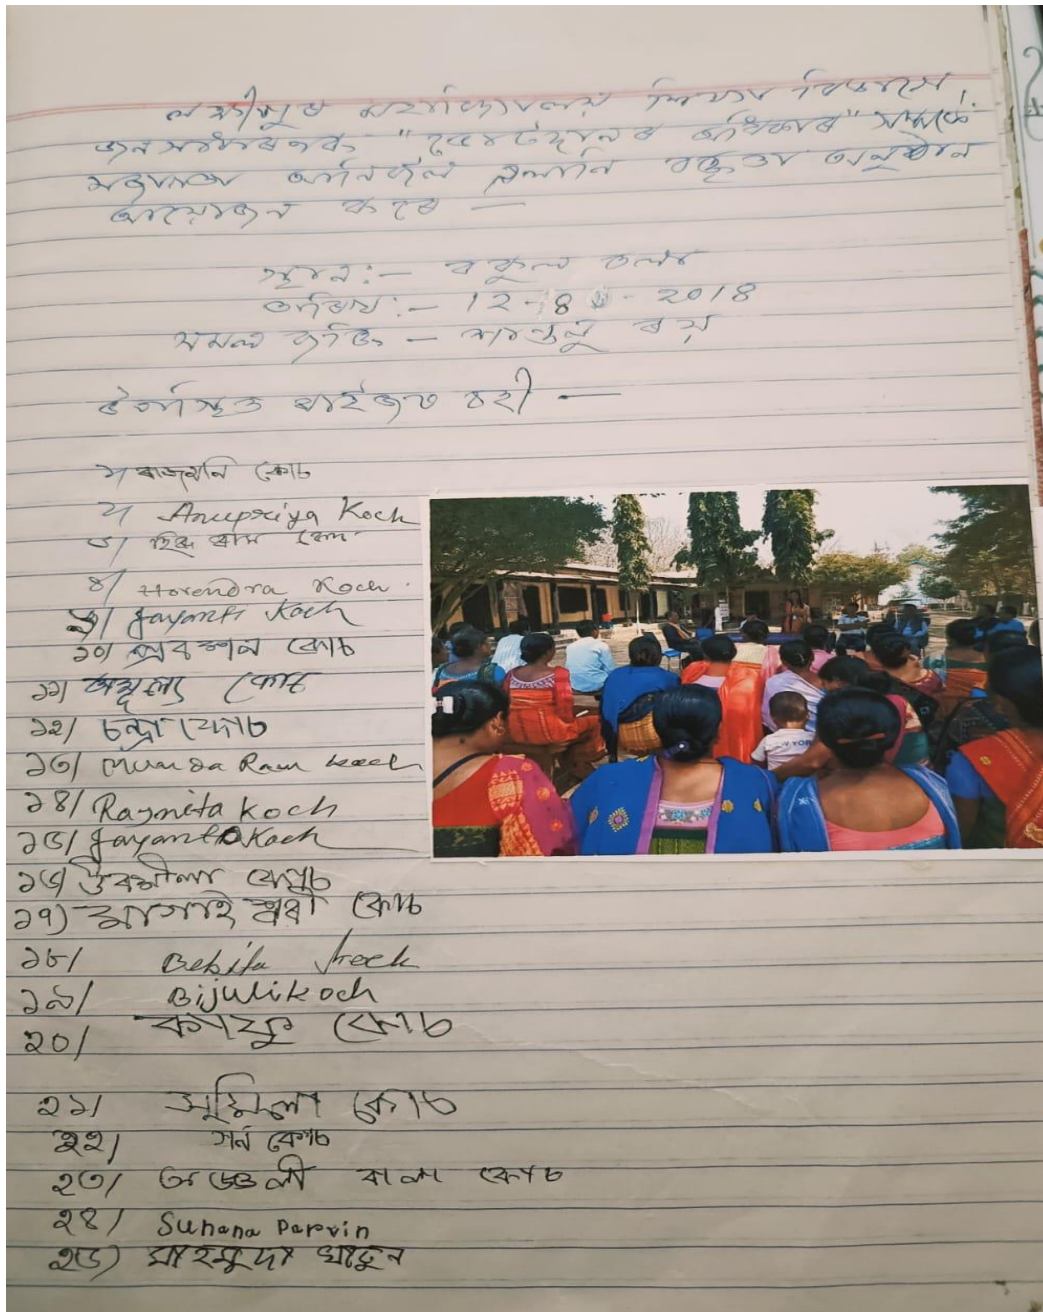 লক্ষীপুৰ মহাবিদ্যালয় শিক্ষা বিভাগে,
জনসাধাৰণক "ভোটদানৰ অধিকাৰ" সম্পৰ্কে
সজাগতা আনিবলৈ এখনি বক্তৃতা অনুষ্ঠান
আয়োজন কৰে —
স্থান:— বকুল তলা
তাৰিখ:— 12-8-2018
সমল ব্যক্তি — শান্তনু ৰয়
উপস্থিত ৰাইজৰ চহী —
১/ ৰাজমনি কোচ
২/ Anupriya Koch
৩/ ৰাম কোচ
৪/ Horendra Koch
৯/ Jayanti Koch
১০/ কোচ
১১/ অমূল্য কোচ
১২/ চন্দ্ৰা কোচ
১৩/ Ram Koch
১৪/ Raymita Koch
১৫/ Jayanto Koch
১৬/ উৰমীলা কোচ
১৭) কোচ
১৮/ Bebita Koch
১৯/ Bijuli Koch
২০/ কোচ
২১/ কোচ
২২/ কোচ
২৩/ অঞ্জলী বালা কোচ
২৪/ Suhana Parvin
২৫) মাহমুদা খাতুন
NEW YOR